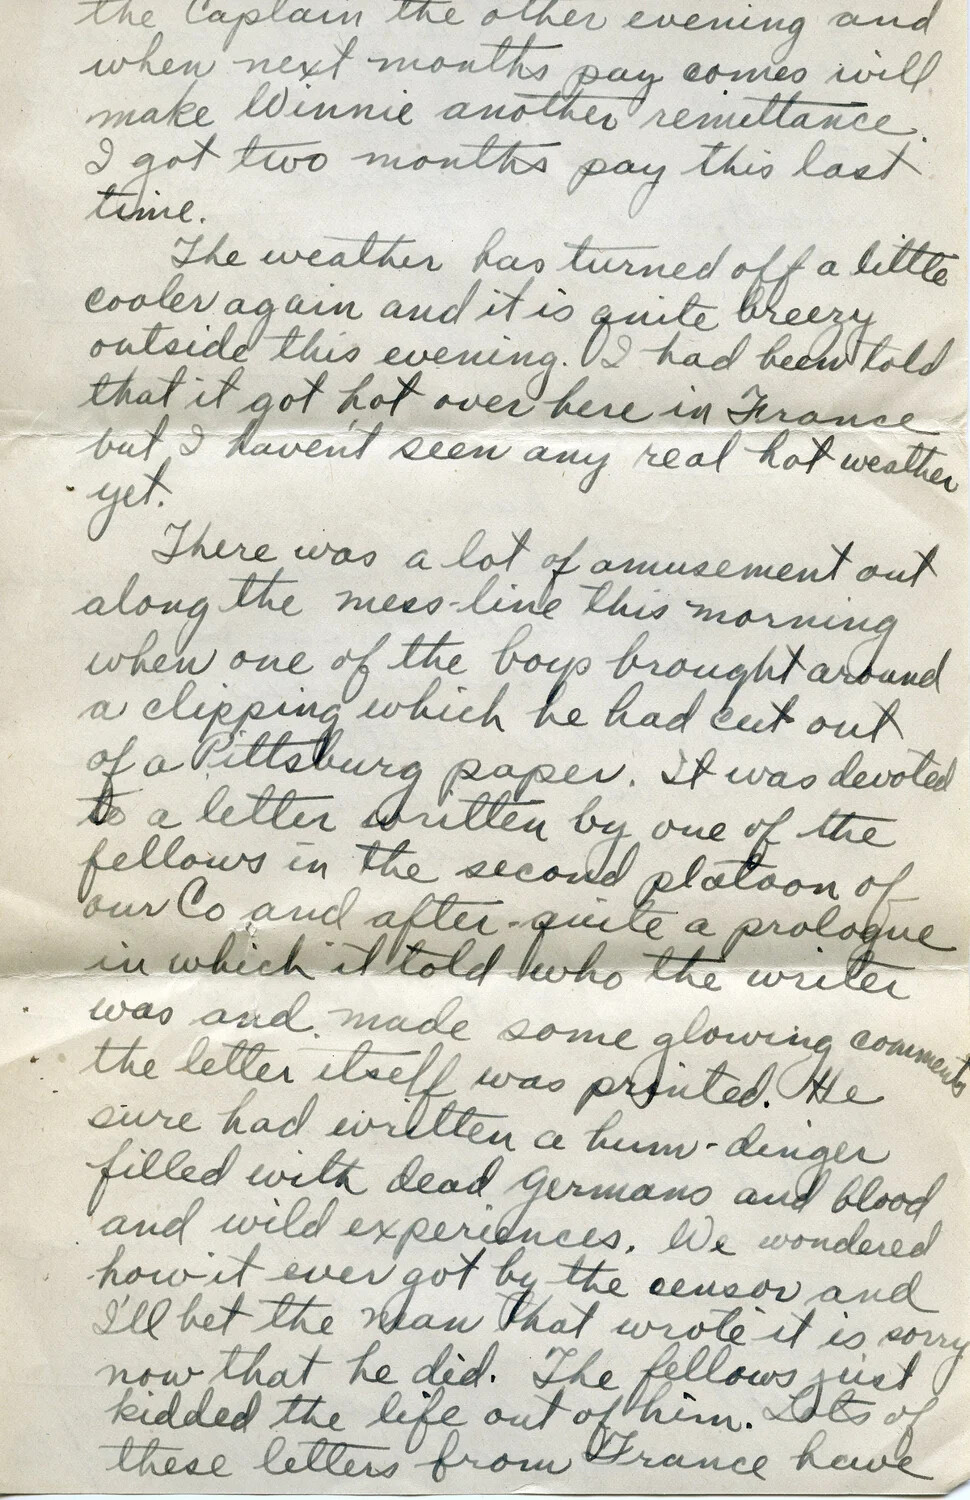 the Captain the other evening and
when next months pay comes will
make Winnie another remittance.
I got two months pay this last
time.
The weather has turned off a little
cooler again and it is quite breezy
outside this evening. I had been told
that it got hot over here in France
but I haven't seen any real hot weather
yet.
There was a lot of amusement out
along the mess-line this morning
when one of the boys brought around
a clipping which he had cut out
of a Pittsburg paper. It was devoted
to a letter written by one of the
fellows in the second platoon of
our Co and after quite a prologue
in which it told who the writer
was and made some glowing comments
the letter itself was printed. He
sure had written a hum-dinger
filled with dead Germans and blood
and wild experiences. We wondered
how it ever got by the censor and
I'll bet the man that wrote it is sorry
now that he did. The fellows just
kidded the life out of him. Lots of
these letters from France have